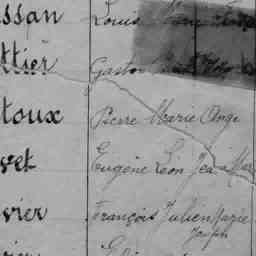 ssan Louis
ttier Gaston
toux Pierre Marie Ange
vet Eugène Léon Jean Mar
vier François Julien Marie
Joseph